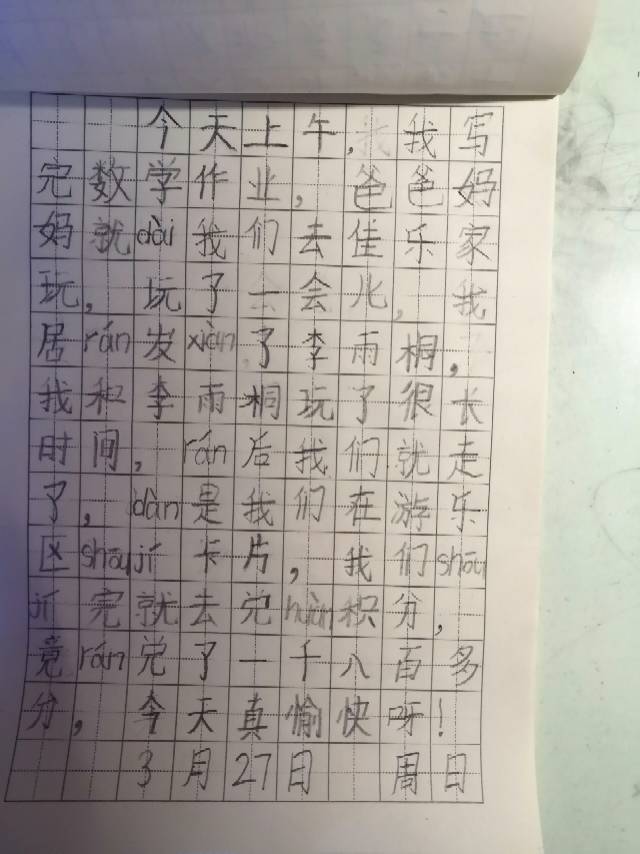 今天上午,我写
完数学作业,爸爸妈
妈就dài我们去佳乐家
玩,玩了一会儿,我
居rán发xiàn了李雨桐,
我和李雨桐玩了很长
时间,rán后我们就走
了,dàn是我们在游乐
区shōují卡片,我们shōu
jí完就去兑huàn积分,
竟rán兑了一千八百多
分,今天真愉快呀!
3月27日 周日